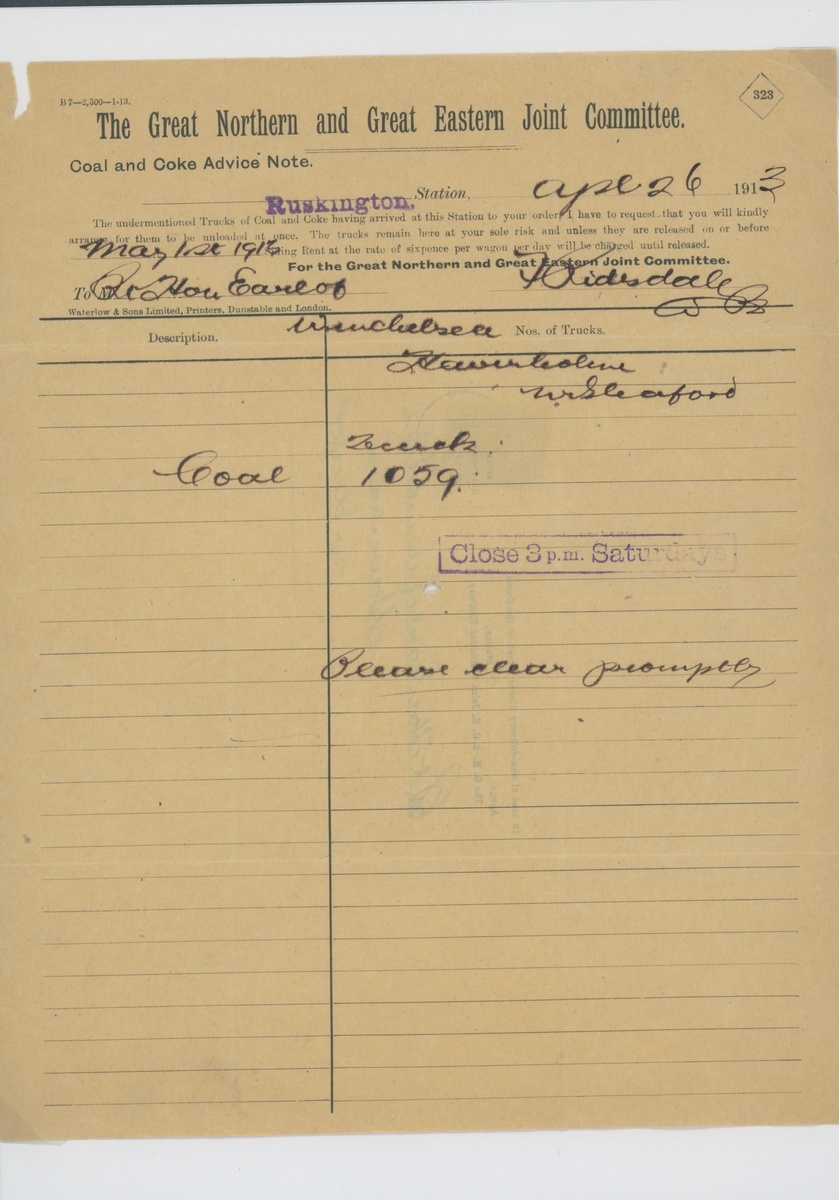 B 7—2,500—1-13.
323
The Great Northern and Great Eastern Joint Committee.
Coal and Coke Advice Note.
Ruskington. Station, Apl 26 1913
The undermentioned Trucks of Coal and Coke having arrived at this Station to your order, I have to request that you will kindly
arrange for them to be unloaded at once. The trucks remain here at your sole risk and unless they are released on or before
May 1st 1913 Siding Rent at the rate of sixpence per wagon per day will be charged until released.
For the Great Northern and Great Eastern Joint Committee.
To Rt Hon Earl of Ridsdale
Waterlow & Sons Limited, Printers, Dunstable and London.
Winchelsea
Description. Nos. of Trucks.
Haverholme
Nr Sleaford
Truck
Coal 1059.
Close 3 p.m. Saturdays
Please clear promptly